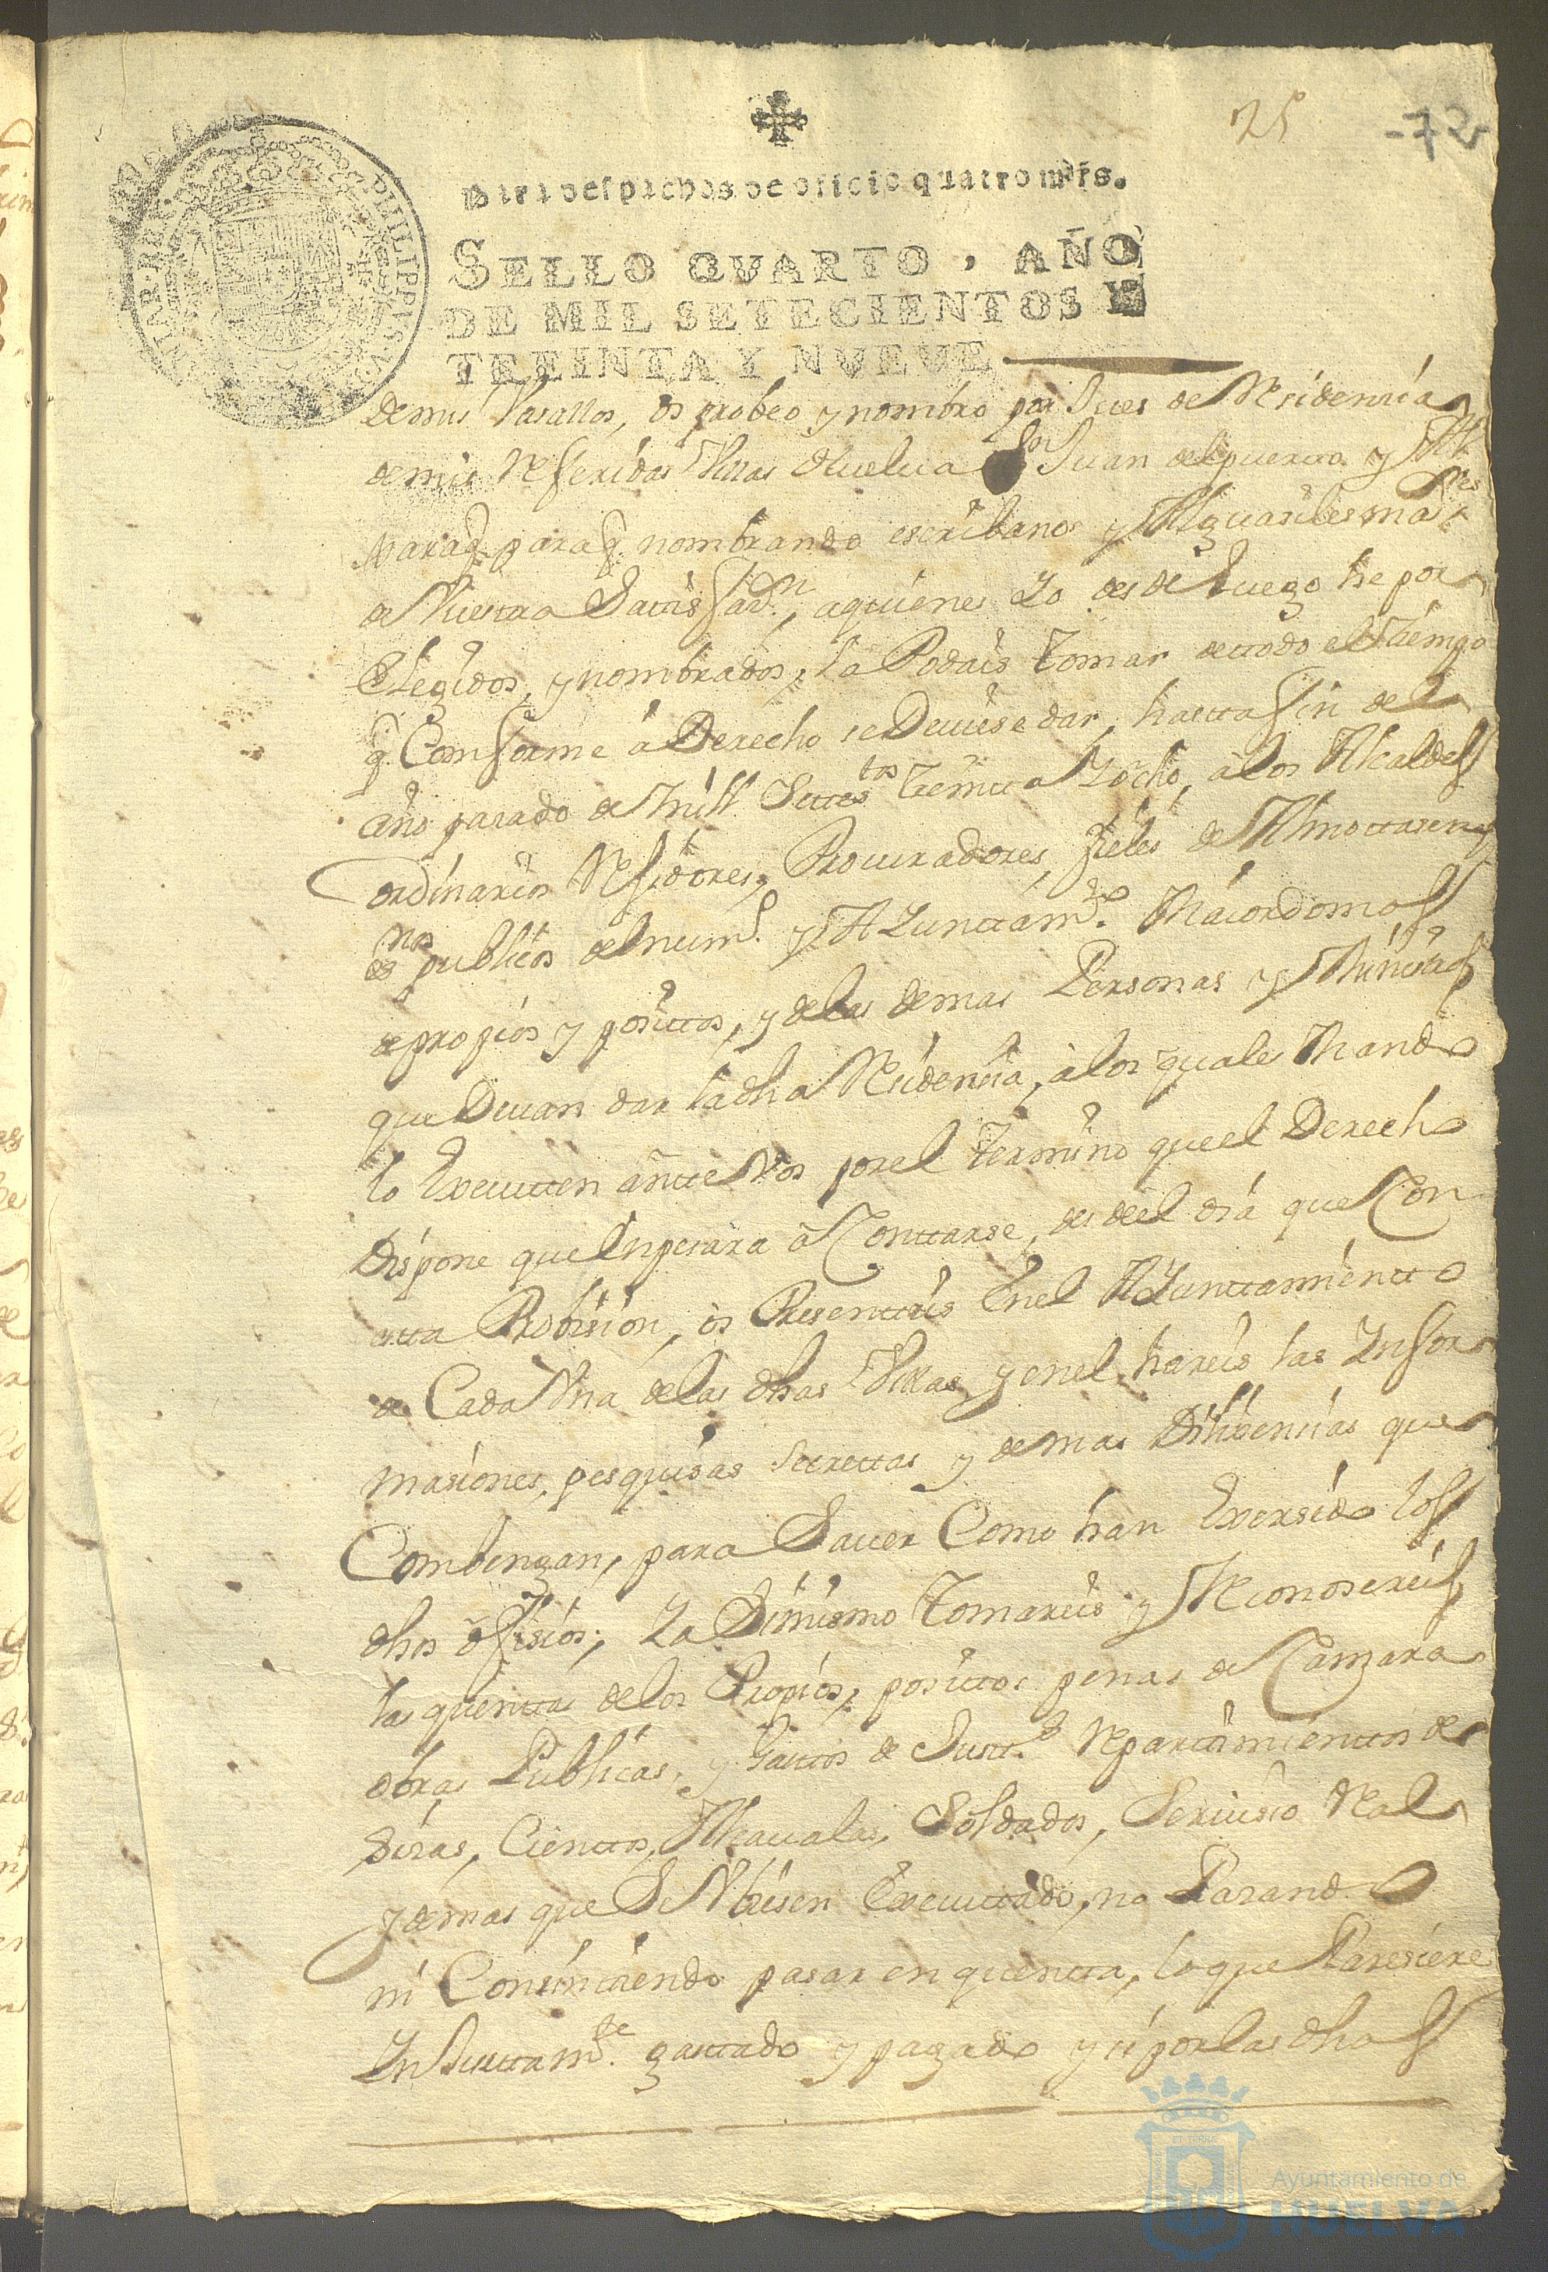 25
-72
Para despachos de oficio quatro mrs.
SELLO QVARTO, AÑO
DE MIL SETECIENTOS Y
TREINTA Y NVEVE
PHILIPPUS V D
demis Vasallos, os probeo y nombro por Jues de Residenсia
demis Referidas Villas Huelua Sn Juan delpuerto y Alx
paraq nombrando escribanos y Alguasiles ma res
de Vuestra Satisfasn, aquienes Yo desde Luego he por
Elegidos, y nombrados, la Podais tomar detodo el tiempo
q Conforme á Derecho se Deuiese dar, hasta fin del
año pasado de Mill Setesтos treinta Yocho, álos Alcaldes
ordinarios Residores, Procuradores, fieles de Almotasen
esnos publicos delnumo y AYunttamto Maiordomos
de propios y posittos, y delas demas Personas y Ministros
que Deuan dar ladha Residensia, álos quales Mando
lo Executten antte Vos porel termino queel Derecho
Dispone que Enpesara á Conttarse, desdeel dia que Con
estta Probision, os Presentteis Enel AYunttamientto
de Cada Vna delas dhas Villas, y enel hareis las Ynfor
masiones, pesquisas secrettas y demas Dilixensias que
Combengan, para Sauer Como han Exersido los
dhos ofisios; Ya Simismo tomareis y Reconosereis
las quenttas delos Propios, posittos penas de Camara
obras Publicas, y Gastos de Justta Repartimienttos de
Sisas, Cienttos, Alcaualas, Soldados, Seruisio Real
y demas que Se Vbiesen Executtado, no Pasando
ni Consinttiendo pasar en quentta, loque Paresiere
YnJusttamte gasttado y pagado y si porlas dhas
Ayuntamiento de
HUELVA